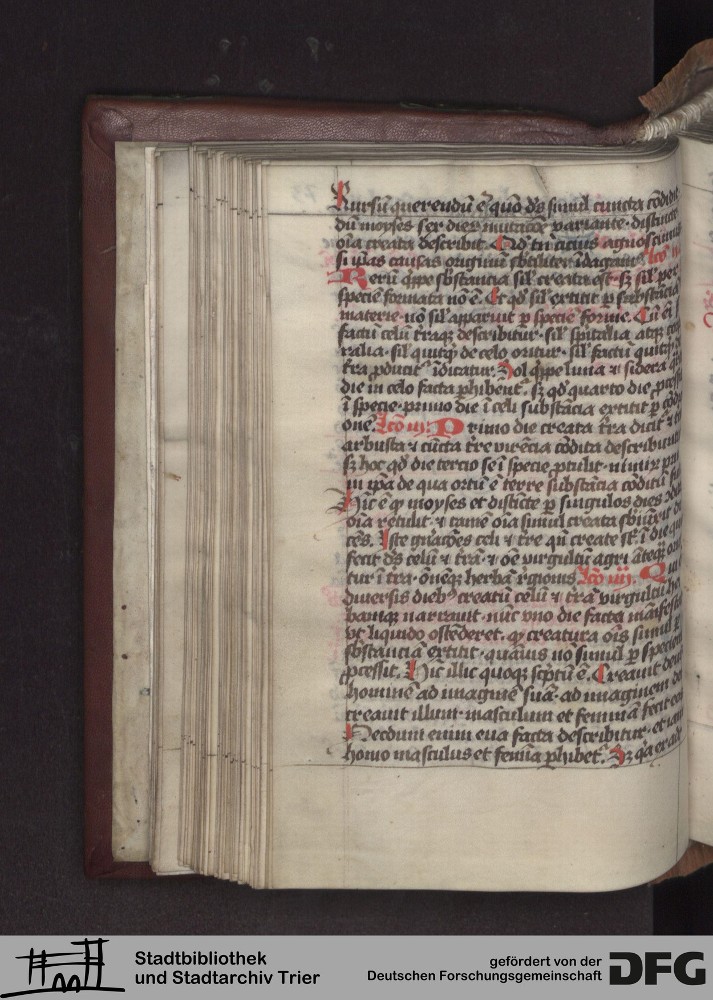 Rursū querendū ē quō dūs simul cuncta cōdidit
dū moyses sex dierū mutacōe variante distincte
oīa creata describit. Qd tn̄ cicius agnoscimus
si ipas causas originū sbtiliter īdagam⁹ lcō ii
Rerū qͥppe sbstancia sil creata est sꝫ sil per
speciē formata nō ē. Et qd sil extitit p substācia
materie nō sil apparuit p speciē forme. Cū ei sil
factū celū t̄raqꝫ describitur sil spūalia atqꝫ corpo
ralia sil quitqͥd de celo oritur sil factū quitqͥd de
t̄ra producit᷑ īdicatur. Sol qͥppe luna ⁊ sidera
die in celo facta phibent᷑. sꝫ qd quarto die processit
ī specie primo die ī celi substācia extitit p cōdici
onē. lcō iii. Primo die creata t̄ra dicit᷑ ⁊
arbusta ⁊ cūcta t̄re virēcia cōdita describunt᷑
sꝫ hoc qd die tercio se ī specie ptulit nimirū
in ipa de qua ortū ē terre substācia cōditū
Hīc ē qꝫ moyses et distīcte p singulos dies
oīa retulit ⁊ tamē oīa simul creata sbiūxit
cēs. Iste gnācōes celi ⁊ t̄re qn̄ create sūt ī die quo
fecit dūs celū ⁊ t̄rā ⁊ oē virgultū agri āteqꝫ ori
tur ī t̄ra ōnēqꝫ herbā rgionis lcō iiii. Qui
diuersis dieb⁹ creatū celū ⁊ t̄rā virgultū her
bamqꝫ narrauit nūc vno die facta manifestat
vt liquido ostēderet qꝫ creatura oīs simul p
sbstanciā extitit quāuis nō simul p speciem
pcessit. Hīc illic quoqꝫ scptū ē. Creauit deus
hominē ad imaginē suā ad imaginem dei
creauit illum masculum et feminā fecit eos
Necdum enim eua facta describitur et iam
homo masculus et femīa phibet᷑. Sꝫ qa ex adā
Stadtbibliothek
und Stadtarchiv Trier
gefördert von der
Deutschen Forschungsgemeinschaft
DFG